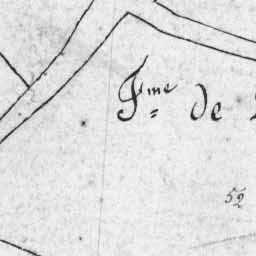 Fme de
52